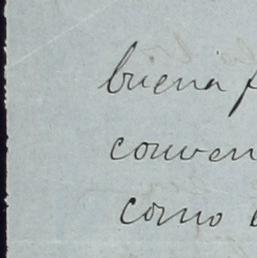 buena f
conven
como